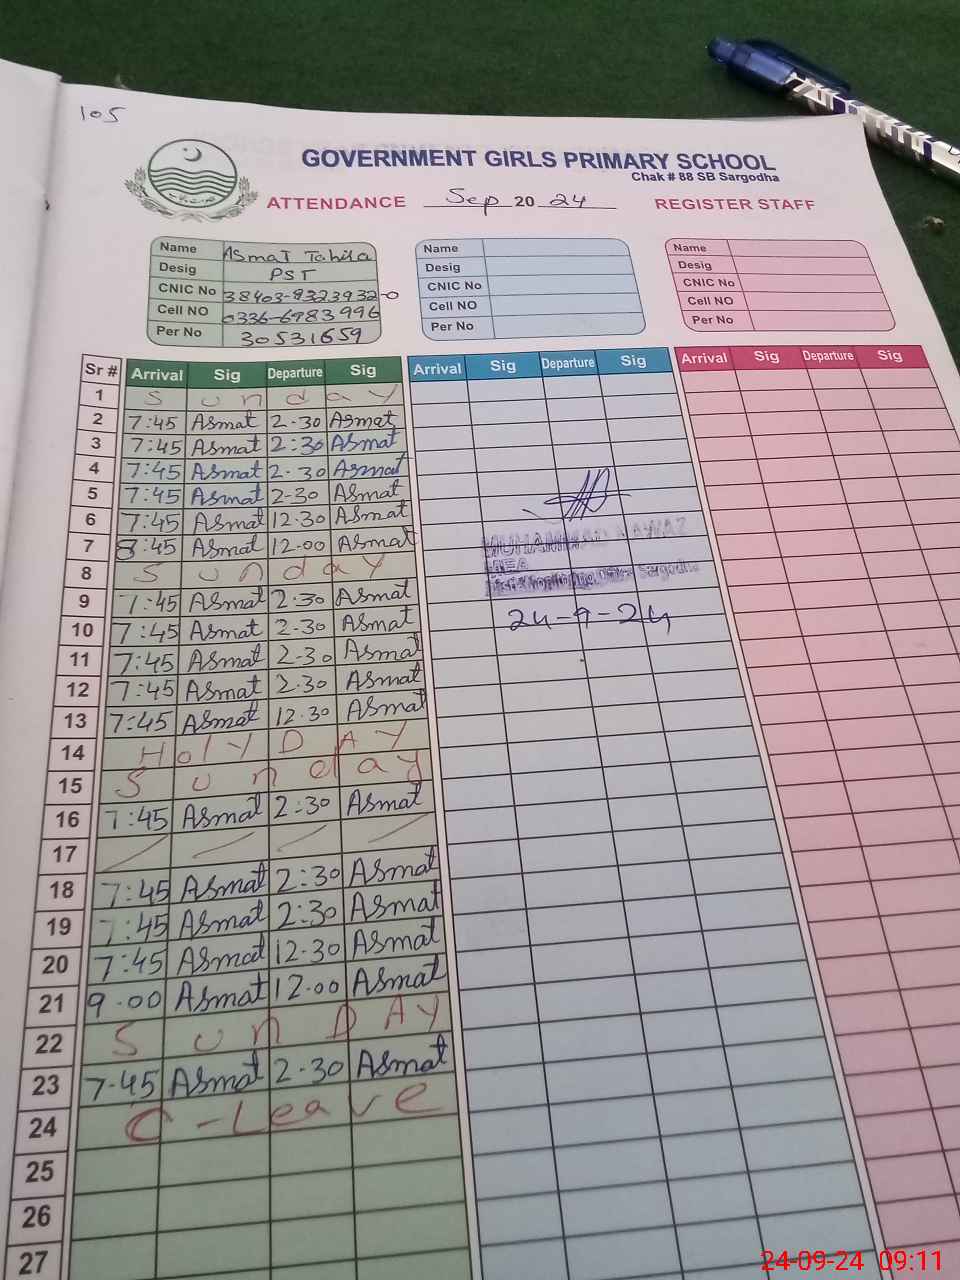 105
GOVERNMENT GIRLS PRIMARY SCHOOL
Chak # 88 SB Sargodha
ATTENDANCE Sep 20 24 REGISTER STAFF
Name Asmat Tahira Name Name
Desig PST Desig Desig
CNIC No 38403-8323932-0 CNIC No CNIC No
Cell NO 0336-6983996 Cell NO Cell NO
Per No 30531659 Per No Per No
Sr # Arrival Sig Departure Sig Arrival Sig Departure Sig Arrival Sig Departure Sig
1 Sunday
2 7:45 Asmat 2-30 Asmat
3 7:45 Asmat 2:30 Asmat
4 7:45 Asmat 2-30 Asmat
5 7:45 Asmat 2-30 Asmat
6 7:45 Asmat 12.30 Asmat
7 8:45 Asmat 12.00 Asmat
MUHAMMAD NAWAZ
8 Sunday
MEA
Sargodha
9 7:45 Asmat 2.30 Asmat
24-9-24
10 7:45 Asmat 2-30 Asmat
11 7:45 Asmat 2-30 Asmat
12 7:45 Asmat 2.30 Asmat
13 7:45 Asmat 12.30 Asmat
14 Holy DAY
15 Sunday
16 7:45 Asmat 2:30 Asmat
17
18 7:45 Asmat 2:30 Asmat
19 7:45 Asmat 2:30 Asmat
20 7:45 Asmat 12.30 Asmat
21 9.00 Asmat 12.00 Asmat
22 SunDAY
23 7-45 Asmat 2.30 Asmat
24 C-Leave
25
26
27
24-09-24 09:11